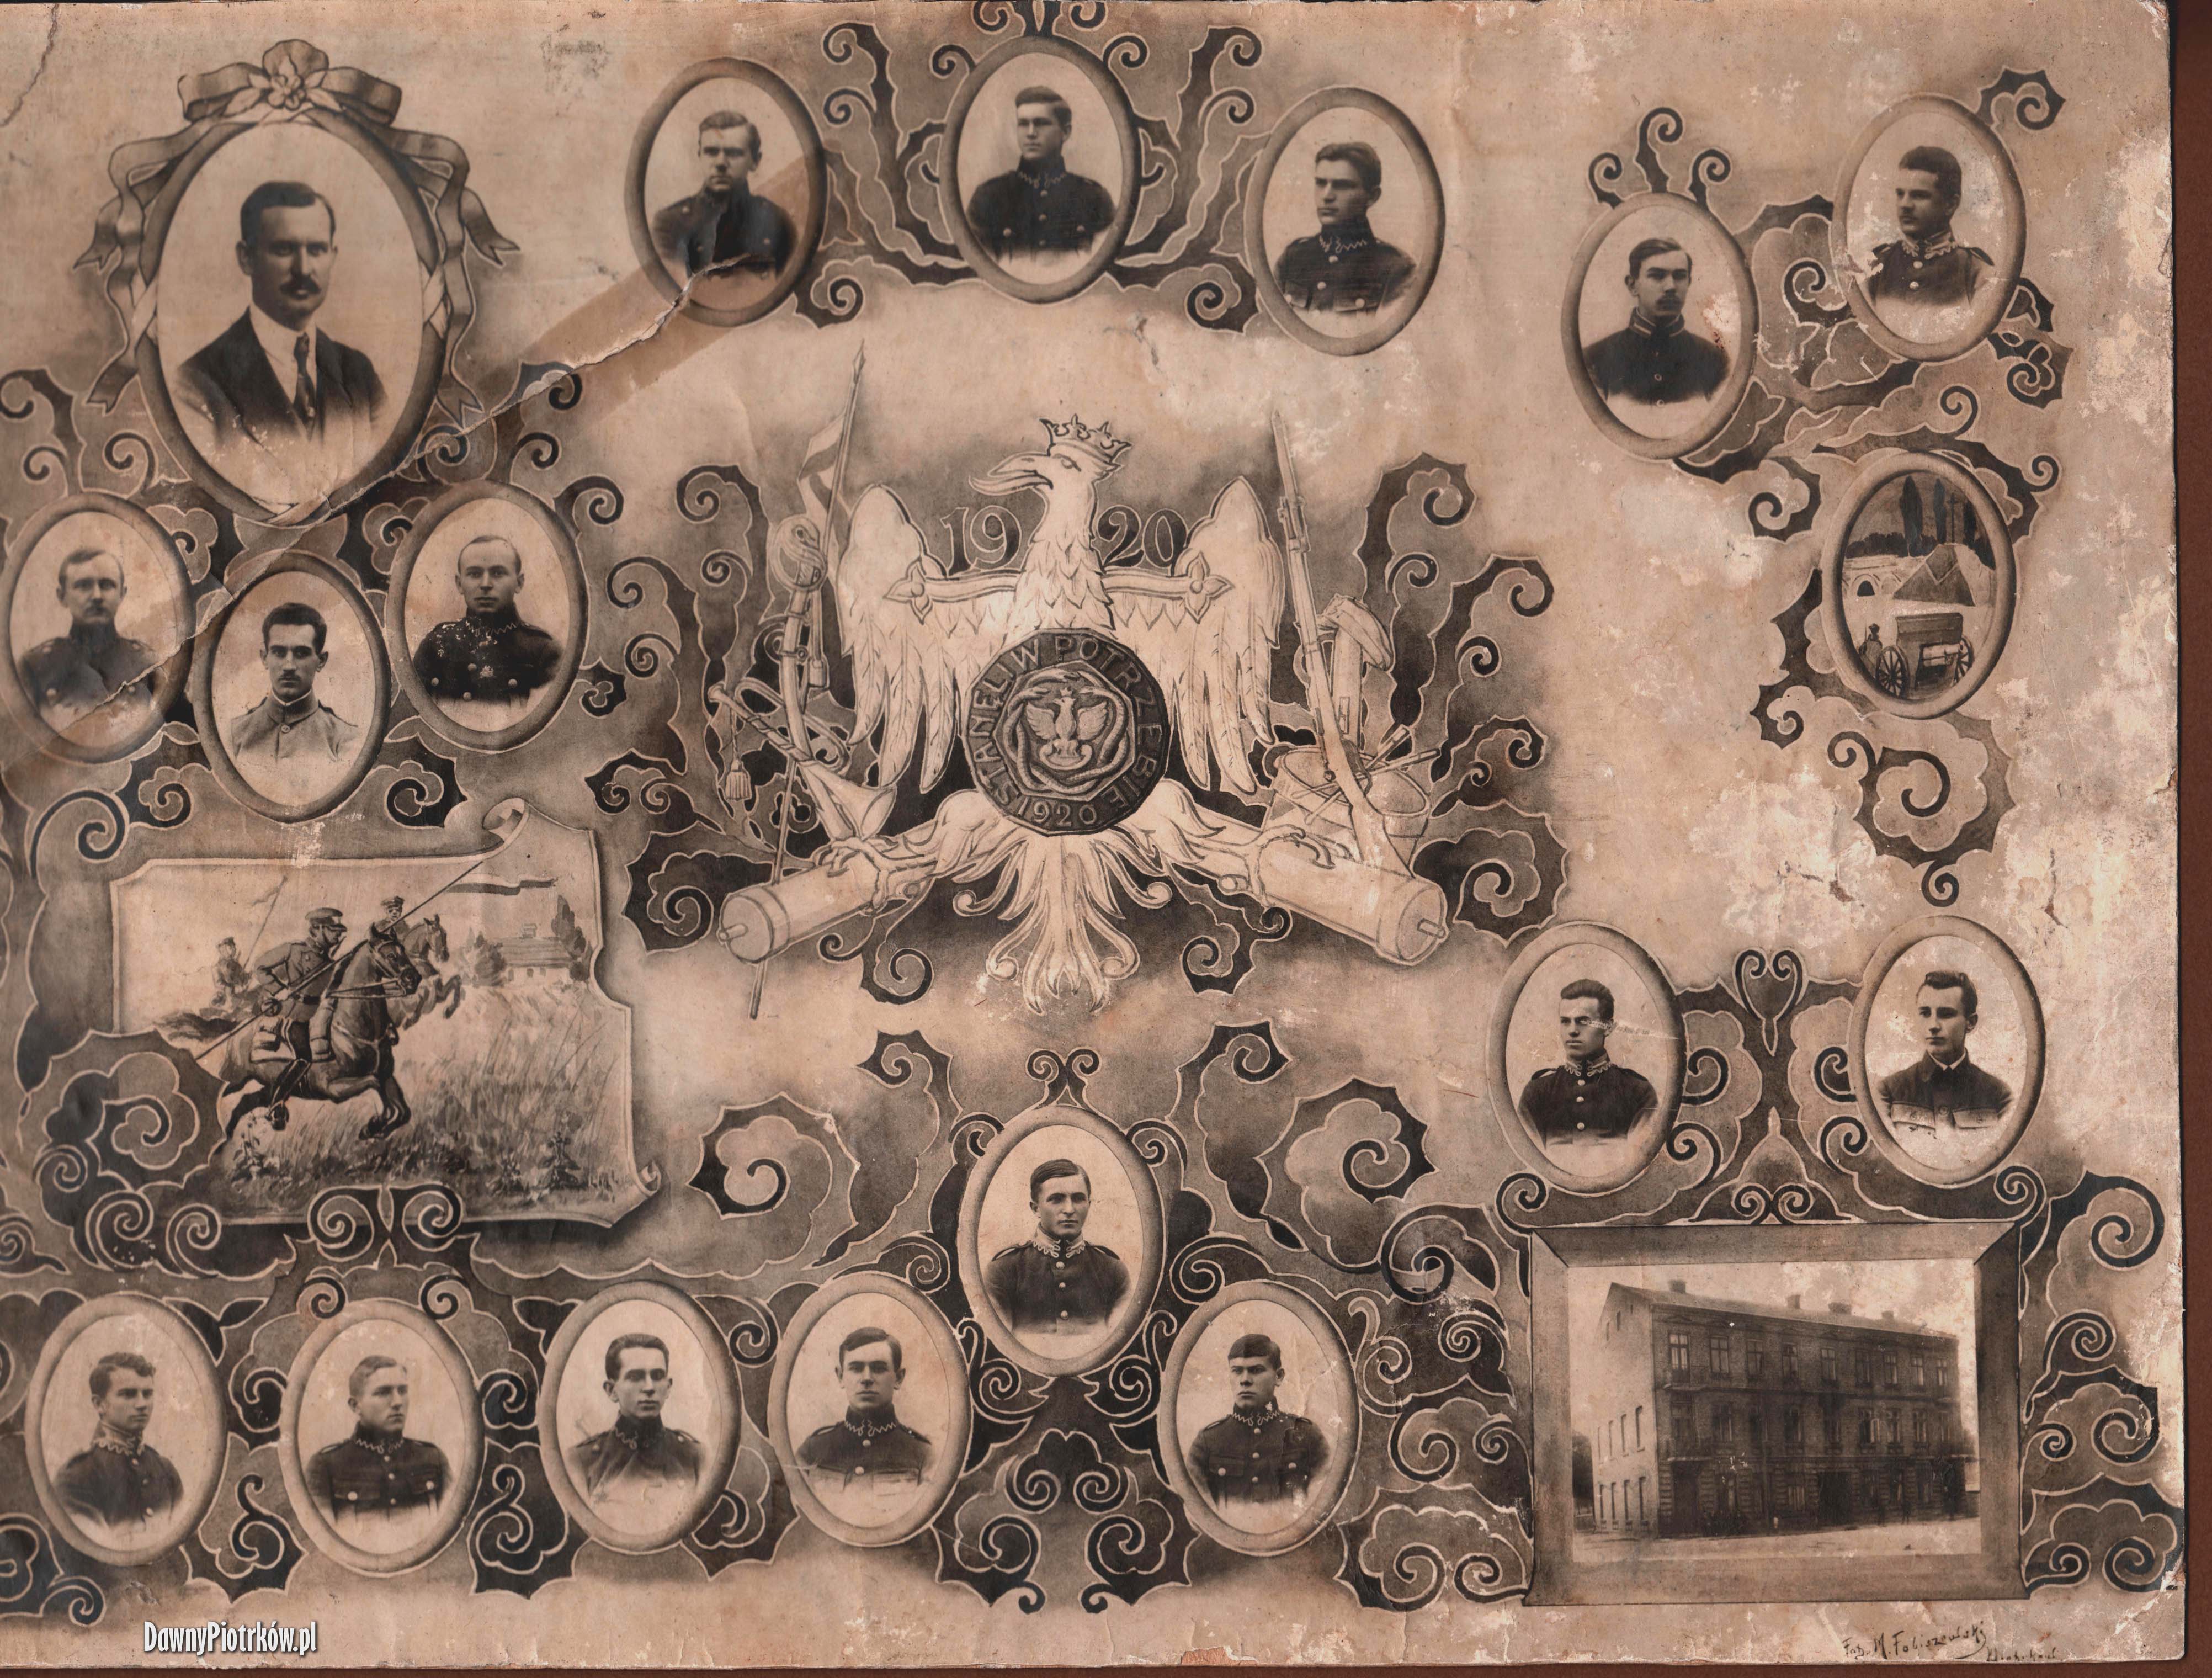 19 20
STANĘLI W POTRZEBIE
1920
DawnyPiotrków.pl
Fot. M. Fabiszewski